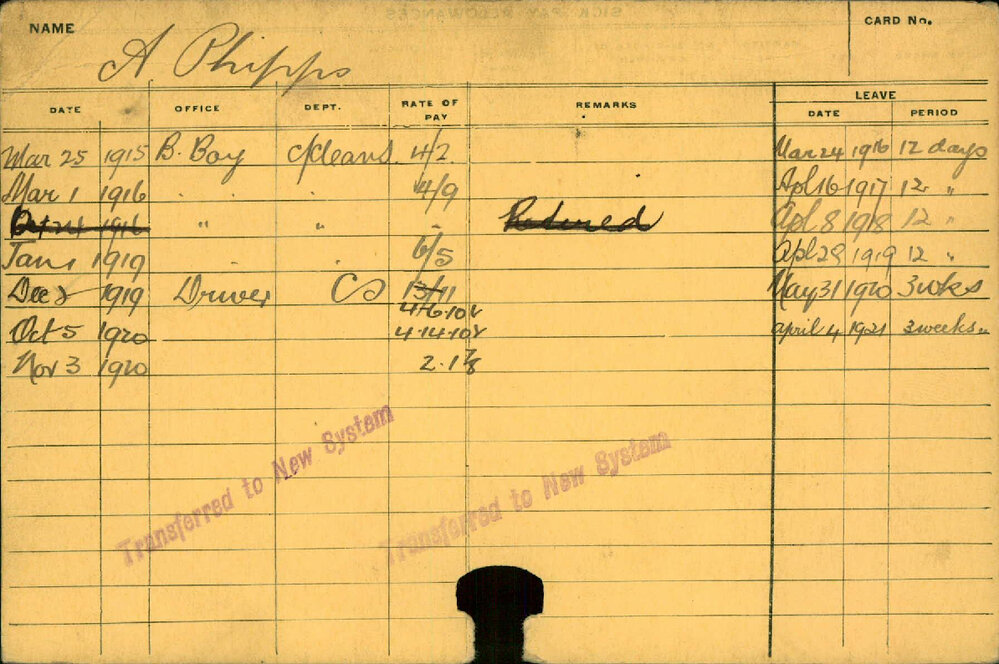 NAME A Phipps CARD No.
LEAVE
DATE OFFICE DEPT. RATE OF PAY REMARKS DATE PERIOD
Mar 25 1915 B. Boy c/cleans 4/2 Mar 24 1916 12 days
Mar 1 1916 " " 4/9 Apl 16 1917 12 "
1916 " " " Retired Apl 8 1918 12 "
Jan 1 1919 " " 6/5 Apl 28 1919 12 "
Dec 2 1919 Driver CS 13/11 May 31 1920 3 wks
4·6·10
Oct 5 1920 4·14·10 april 4 1921 3 weeks "
Nov 3 1920 2·1 7/8
Transferred to New System
Transferred to New System